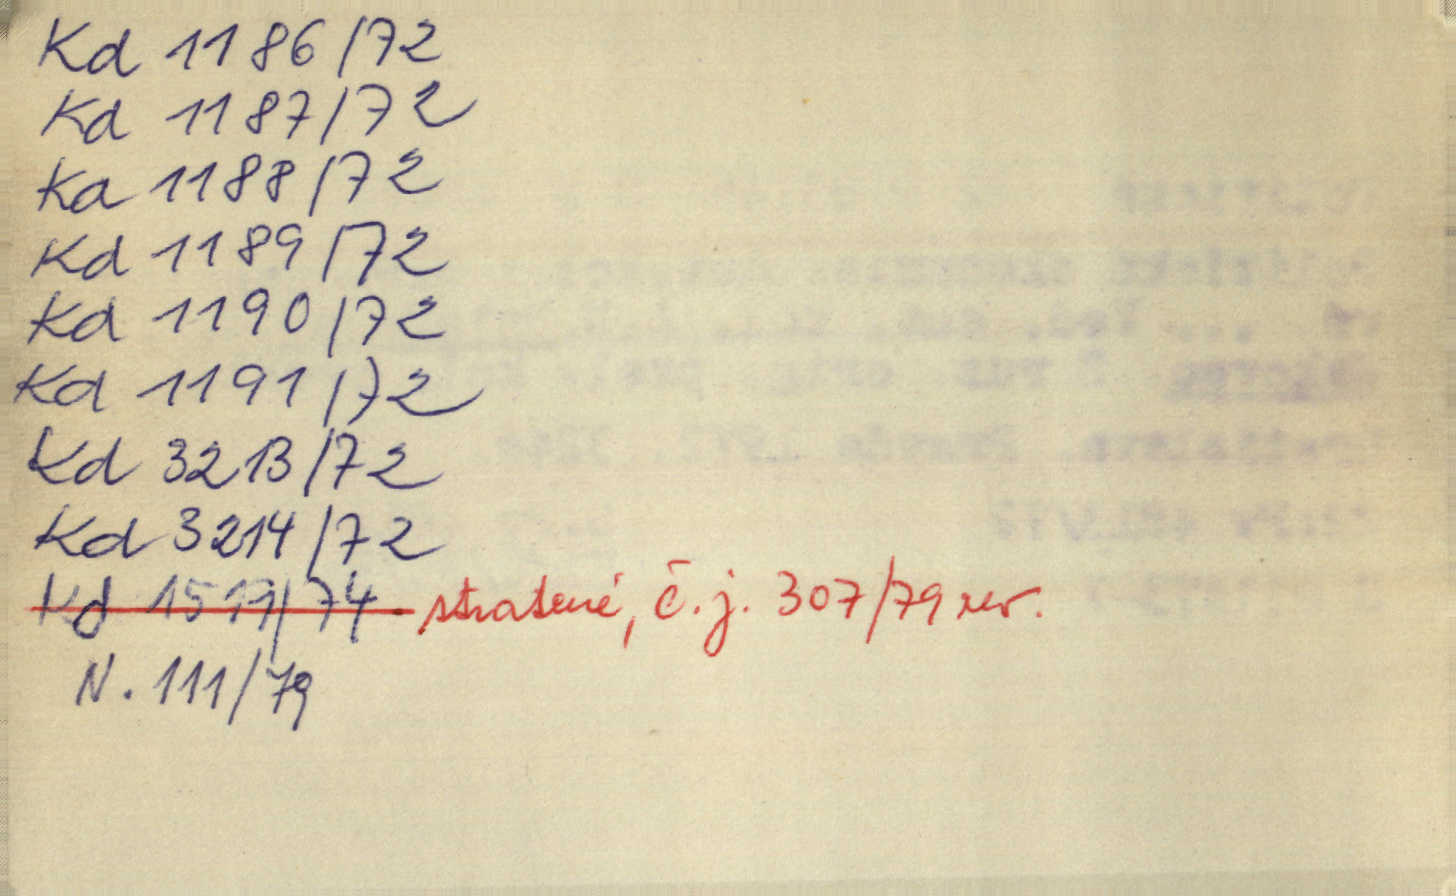 Kd 1186/72
Kd 1187/72
Kd 1188/72
Kd 1189/72
Kd 1190/72
Kd 1191/72
Kd 3213/72
Kd 3214/72
Kd 1519/74 stratené, č.j. 307/79 rev.
N. 111/79